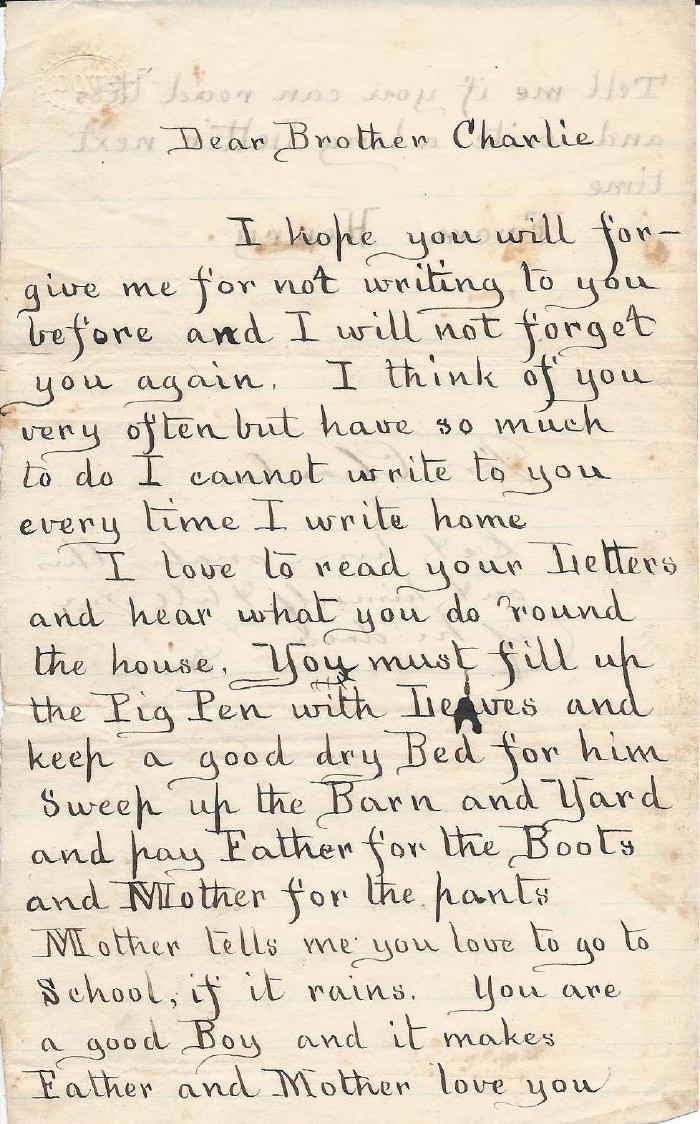 Dear Brother Charlie
I hope you will for-
give me for not writing to you
before and I will not forget
you again. I think of you
very often but have so much
to do I cannot write to you
every time I write home
I love to read your Letters
and hear what you do 'round
the house. You must fill up
the Pig Pen with Leaves and
keep a good dry Bed for him
Sweep up the Barn and Yard
and pay Father for the Boots
and Mother for the pants
Mother tells me you love to go to
School, if it rains. You are
a good Boy and it makes
Father and Mother love you